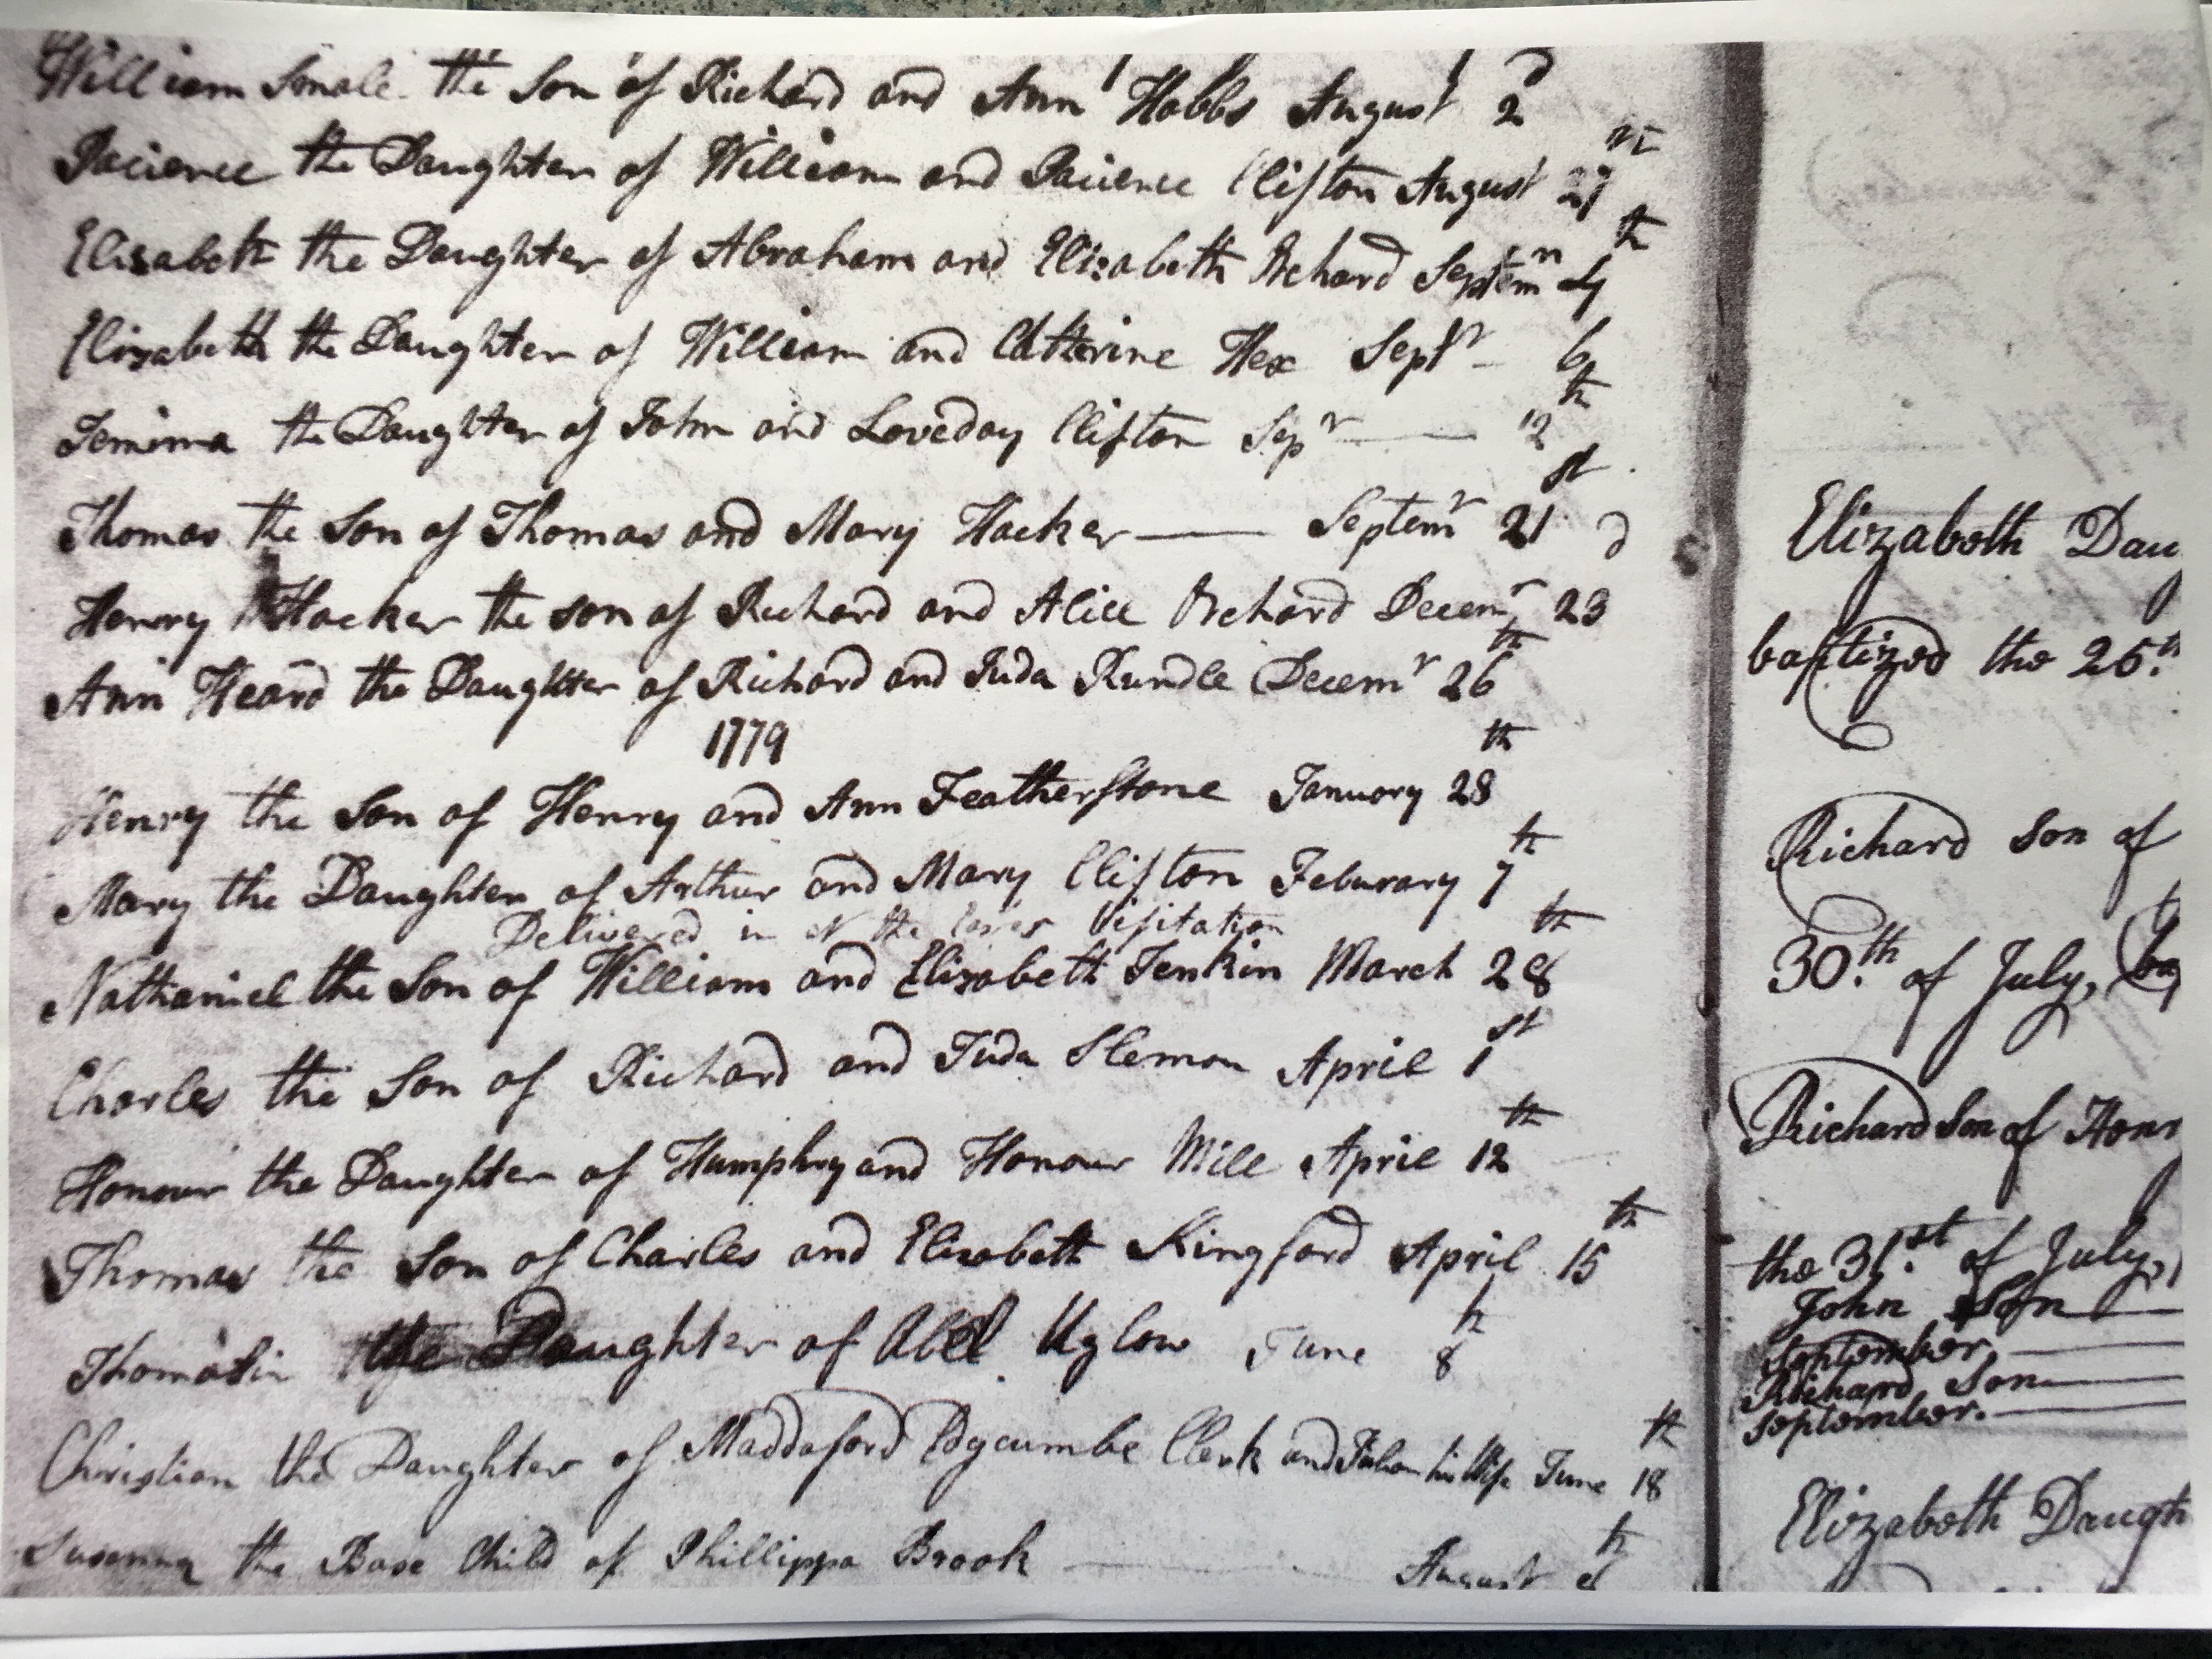 William Smale the Son of Richard and Ann Hobbs August 2d
Pacience the Daughter of William and Pacience Clifton August
Elisabeth the Daughter of Abraham and Elizabeth Orchard Septem 4th
Elizabeth the Daughter of William and Catterine Hex Septr 6th
Jemima the Daughter of John and Loveday Clifton Sepr 12th
Thomas the Son of Thomas and Mary Hacker Septemr 21st
Henry Hacker the son of Richard and Alice Orchard Decemr 23d
Ann Heard the Daughter of Richard and Juda Rundle Decemr 26th
1779
Henry the Son of Henry and Ann Featherstone January 28th
Mary the Daughter of Arthur and Mary Clifton Feburary 7th
Delivered in at the Visitation
Nathaniel the Son of William and Elizabeth Jenkin March 28th
Charles the Son of Richard and Juda Slemon April 1st
Honour the Daughter of Humphry and Honour Mill April 12th
Thomas the Son of Charles and Elizabeth Kingford April 15th
Thomasin the Daughter of Abel Uglow June 8th
Christian the Daughter of Maddaford Edgcumbe Clerk and his Wife June 18th
Susanna the Base Child of Phillippa Brook August
Elizabeth Daug
baptized the 26th
Richard Son of
30th of July, ba
Richard Son of Honr
the 31st of July,
John Son
September.
Richard Son
September.
Elizabeth Daugh